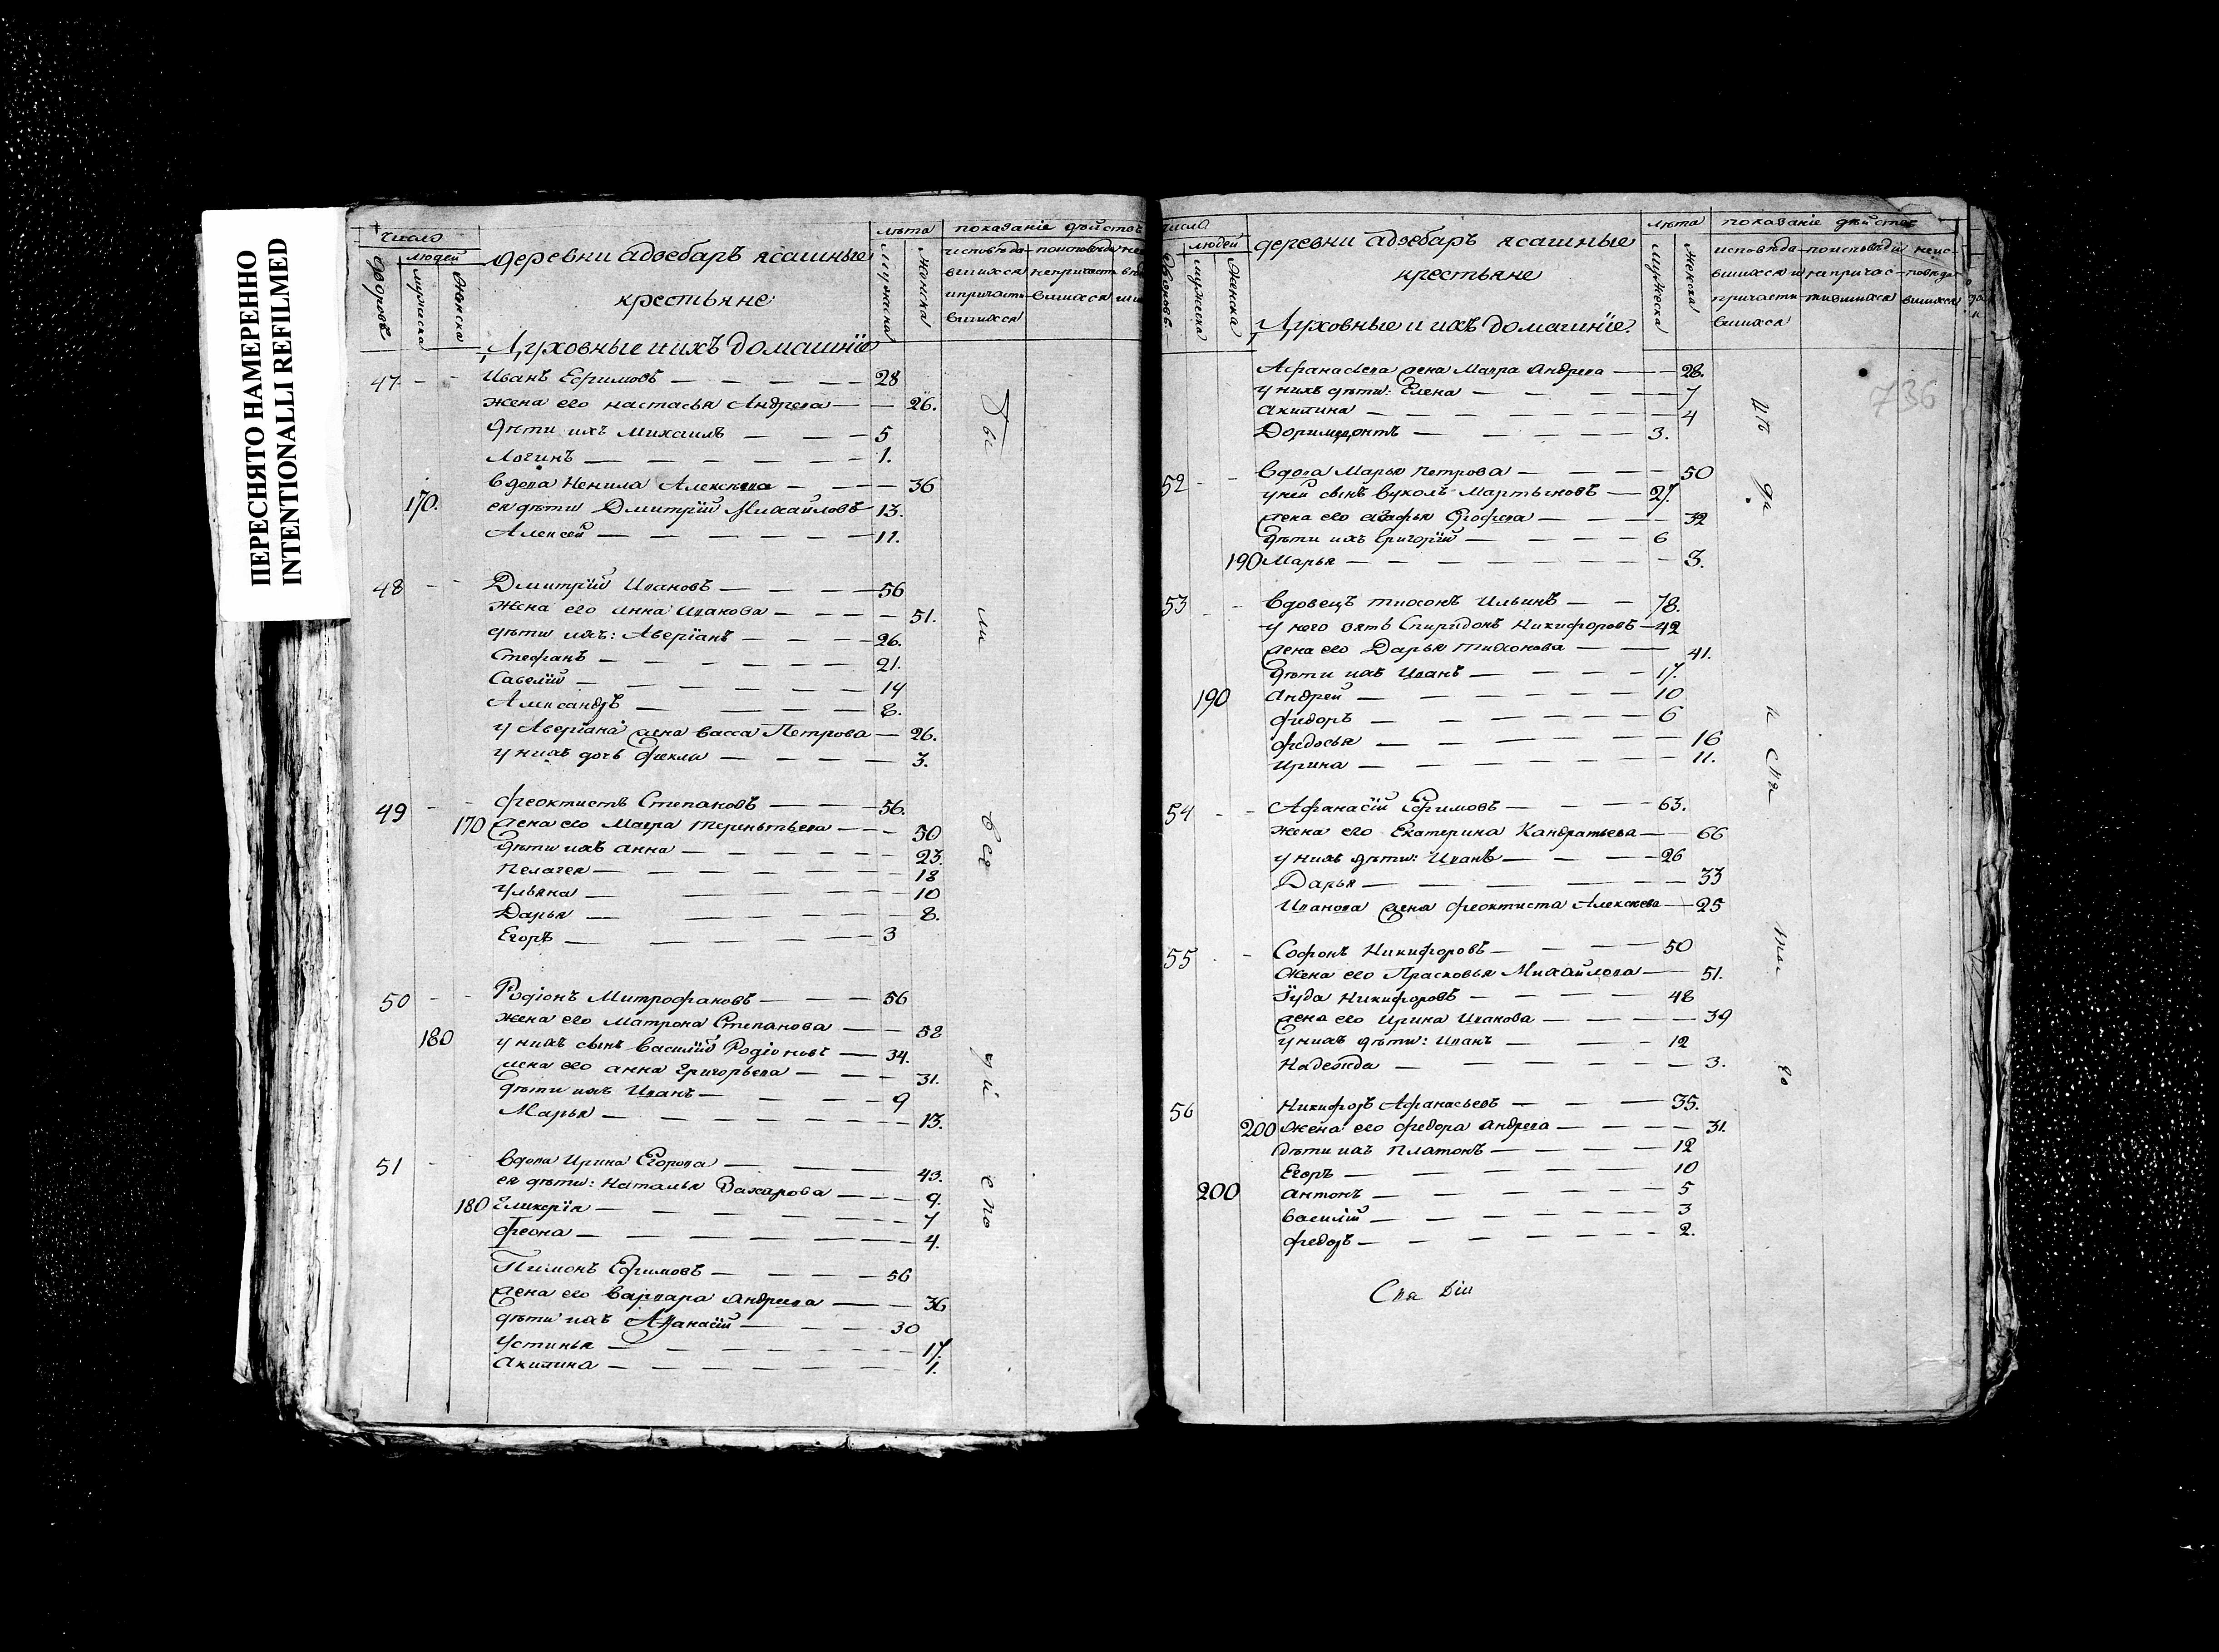 ПЕРЕСНЯТО НАМЕРЕННО
INTENTIONALLI REFILMED
число
людей
дворовъ
мужеска
женска
деревни адзебаръ ясашные
крестьяне
Духовные и ихъ домашнїе
лѣта
мужеска
женска
показанїе дѣйства
исповѣда-
вшихся
и причасти-
вшихся
47 Иванъ Ефимовъ 28
жена его настасья Андреева 26.
дѣти ихъ Михаилъ 5
Логинъ 1.
вдова Ненила Алексѣева 36
170. ея дѣти Дмитрїй Михайловъ 13.
Алексей 11.
48 Дмитрїй Ивановъ 56
жена его анна Иванова 51.
дѣти ихъ: Аверїанъ 26.
Стефанъ 21.
Савелїй 14
Александръ 8.
у Аверїана жена васса Петрова 26.
у нихъ дочь Фекла 3.
49 Феоктистъ Степановъ 56.
170 жена его Мавра терентьева 50
дѣти ихъ анна 23.
Пелагея 18
Ульяна 10
Дарья 8.
Егоръ 3
50 Родїонъ Митрофановъ 56
жена его Матрона Степанова 52
180 у нихъ сынъ Василїй Родїоновъ 34.
жена его анна Григорьева 31.
дѣти ихъ Иванъ 9
Марья 13.
51 вдова Ирина Егорова 43.
ея дѣти: Наталья Захарова 9.
180 Гликерїя 7
Феона 4.
Пимонъ Ефимовъ 56
жена его варвара андреева 36
дѣти ихъ Афанасїй 30
Устинья 17.
акилина 1.
число
людей
дворовъ
мужеска
женска
деревни адзебаръ ясашные
крестьяне
Духовные и ихъ домашнїе.
лѣта
мужеска
женска
показанїе дѣйства
исповѣда-
вшихся и
причасти-
вшихся
736
Афанасьева жена Мавра андреева 28.
у нихъ дѣти: Елена 7
акилина 4
Доримедонтъ 3.
52 вдова Марья Петрова 50
у ней сынъ вуколъ Мартыновъ 27.
жена его агафья Ерофеева 32
дѣти ихъ григорїй 6
190 Марья 3.
53 вдовецъ тихонъ Ильинъ 78.
у него зять Спиридонъ Никифоровъ 42
жена его Дарья тихонова 41.
дѣти ихъ Иванъ 17.
190 андрей 10
Федоръ 6
Федосья 16
Ирина 11.
54 Афанасїй Ефимовъ 63.
жена его Екатерина Кандратьева 66
у нихъ дѣти: Иванъ 26
Дарья 33
Иванова жена Феоктиста Алексѣева 25
55 Софонъ Никифоровъ 50
жена его Прасковья Михайлова 51.
Їуда Никифоровъ 48
жена его Ирина Иванова 39
у нихъ дѣти: Иванъ 12
Надежда 3.
56 Никифоръ Афанасьевъ 35.
200 жена его Федора андреева 31.
дѣти ихъ Платонъ 12
Егоръ 10
200 антонъ 5
василїй 3
Федоръ 2.